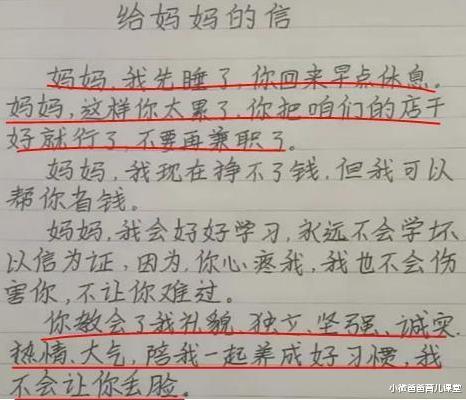 给妈妈的信
妈妈,我先睡了,你回来早点休息。
妈妈,这样你太累了,你把咱们的店干
好就行了,不要再兼职了。
妈妈,我现在挣不了钱,但我可以
帮你省钱。
妈妈,我会好好学习,永远不会学坏
以信为证,因为,你心疼我,我也不会伤
害你,不让你难过。
你教会了我礼貌、独立、坚强、诚实、
热情、大气,陪我一起养成好习惯,我
不会让你丢脸。
小微爸爸育儿课堂